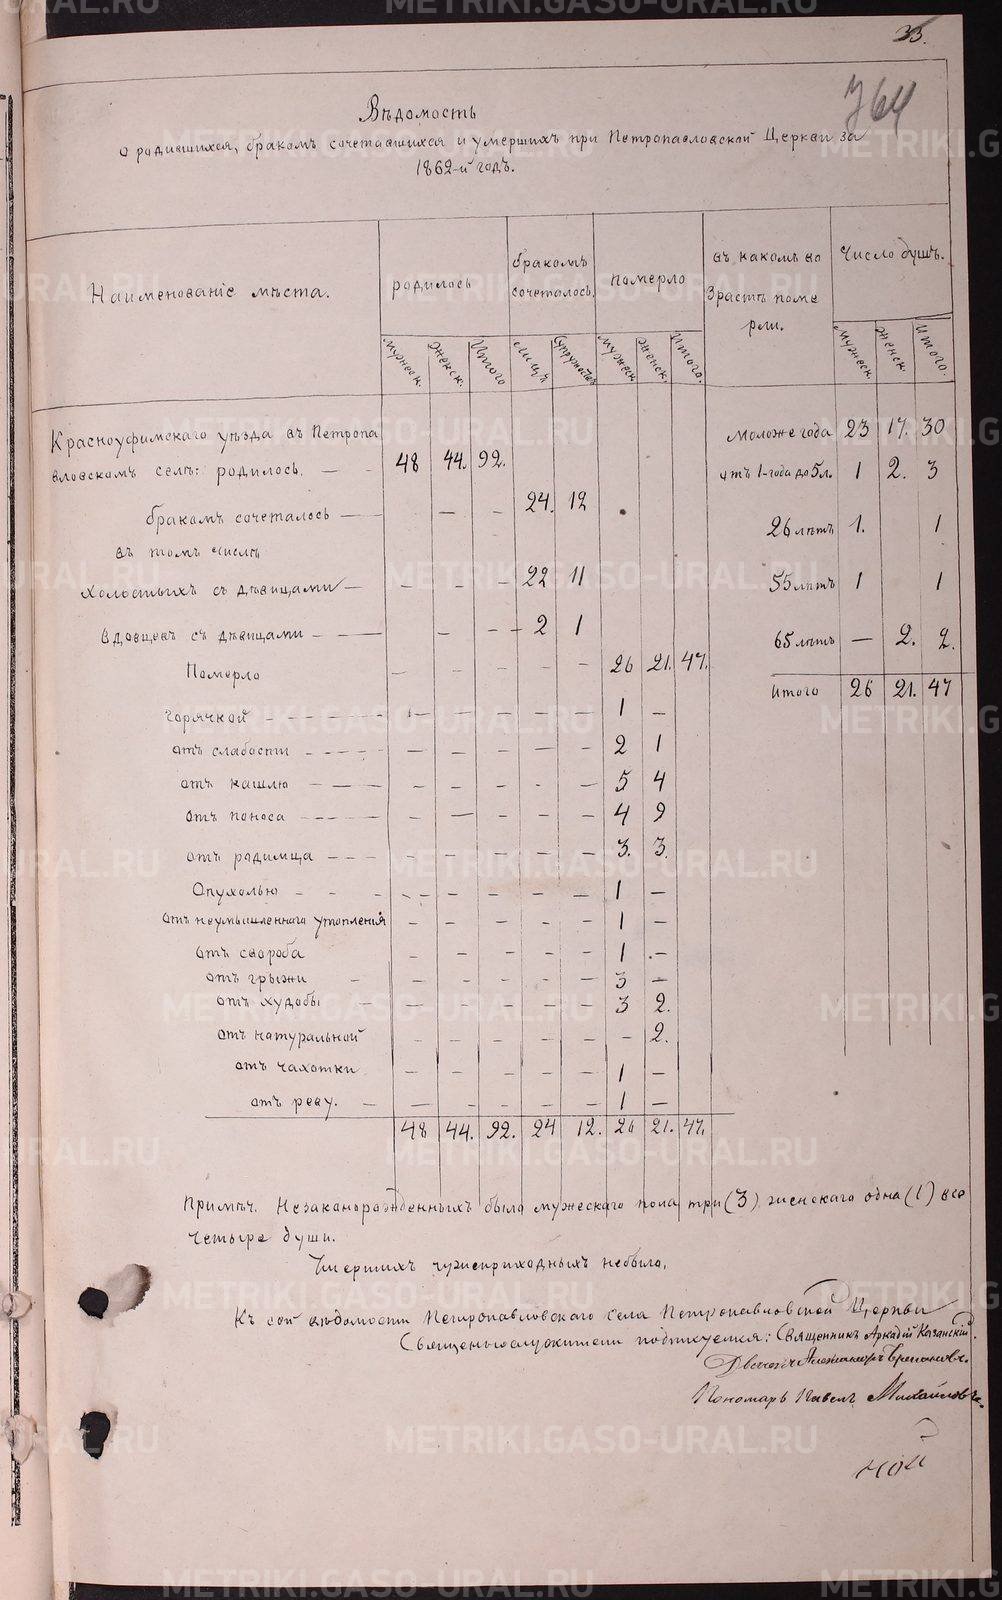 33.
764
Вѣдомость
о родившихся, бракомъ сочетавшихся и умершихъ при Петропавловской Церкви за
1862-й годъ.
Наименованіе мѣста. родилось бракомъ сочеталось. померло въ какомъ возрастѣ померли. Число душъ.
мужеск. женск. Итого лицъ супружествъ мужеск. женск. Итого. мужеск. женск. Итого.
Красноуфимскаго уѣзда въ Петропа
вловскомъ селѣ: родилось. — - 48 44. 92.
моложе года 23 17. 30
отъ 1-года до 5 л. 1 2. 3
бракомъ сочеталось — — - 24. 12
26 лѣтъ 1. 1
въ томъ числѣ
холостыхъ съ дѣвицами — - - - - 22 11
55 лѣтъ 1 1
вдовцевъ съ дѣвицами - - — - - - - 2 1
65 лѣтъ — 2. 2.
Померло — - - - - - 26 21. 47.
Итого 26 21. 47
горячкой - - - - - - - - - 1 —
отъ слабости - - - - - - - - - 2 1
отъ кашлю - - - - - - - - 5 4
отъ поноса - - - - - - - - 4 9
отъ родимца - - - - - - - - 3. 3.
Опухолью - - - - - - - - 1 —
отъ неумышленнаго утопленія - - - - - 1 —
отъ свороба - - - - - 1 —
отъ грыжи - - - - - - 3 —
отъ худобы — - - - - - 3 2.
отъ натуральной - - - - - - 2.
отъ чахотки - - - - - 1 —
отъ реву. - - - - - - 1 —
48 44. 92. 24 12. 26 21. 47.
Примѣч. Незаконорожденныхъ было мужескаго пола три (3) женскаго одна (1) все
четыре души.
Умершихъ чужеприходныхъ небыло.
Къ сей вѣдомости Петропавловскаго села Петропавловской Церкви
Священнослужители подписуемся: Священникъ Аркадій Казанскій.
Дьячекъ Александръ
Пономарь Павелъ Михайловъ
METRIKI.GASO-URAL.RU